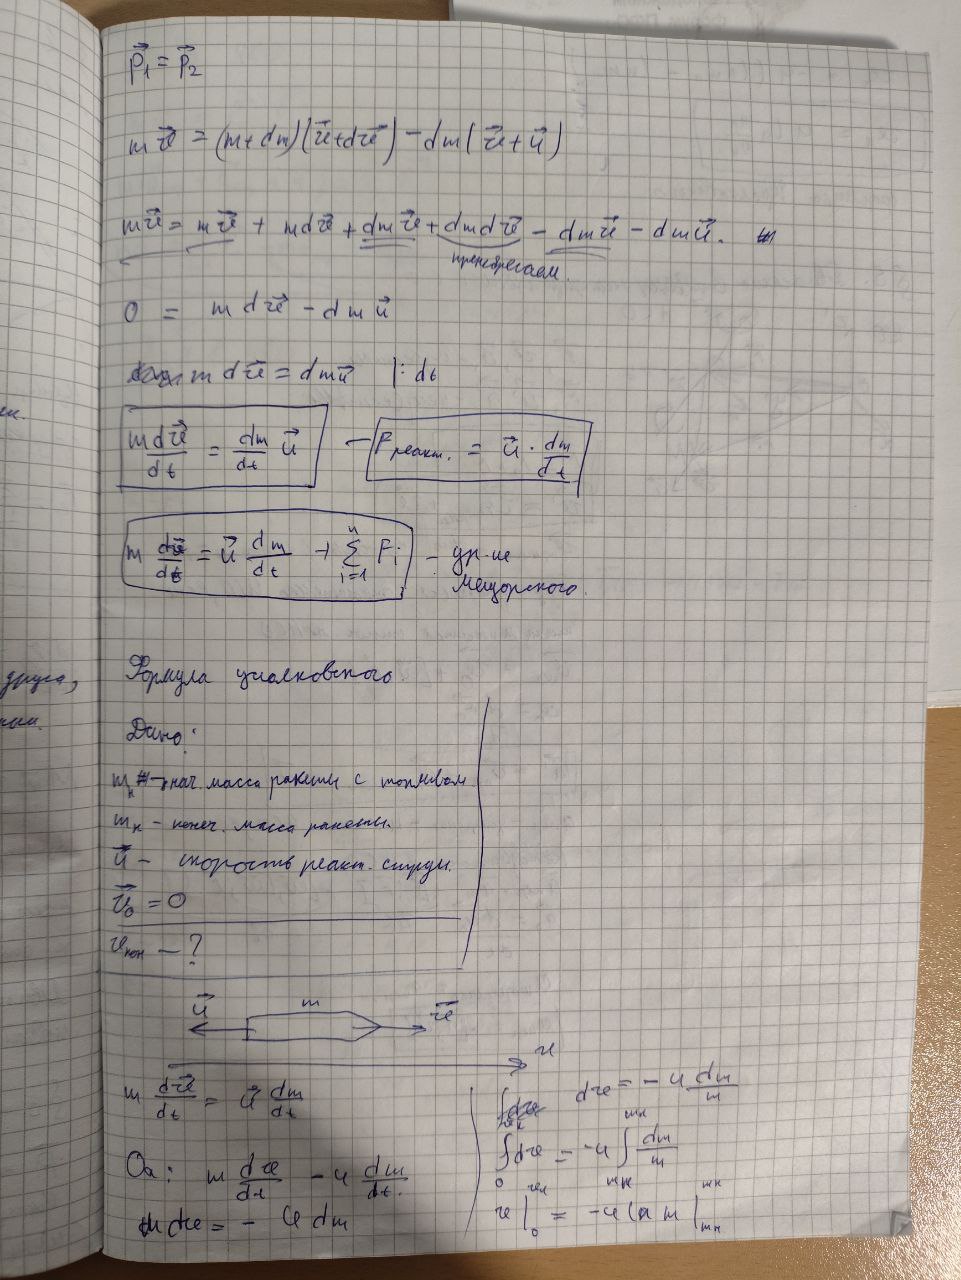 p⃗₁ = p⃗₂
m v⃗ = (m+dm)(v⃗+dv⃗) - dm(v⃗+u⃗)
mv⃗ = mv⃗ + mdv⃗ + dmv⃗ + dmdv⃗ - dmv⃗ - dmu⃗.
пренебрегаем.
0 = m dv⃗ - dm u⃗
m dv⃗ = dmu⃗ |: dt
m dv⃗/dt = dm/dt u⃗ — Fреакт. = u⃗ · dm/dt
m dv⃗/dt = u⃗ dm/dt + Σ Fi (i=1, n) - ур-ие
Мещорского.
друга,
Формула циолковского
Дано:
mн - нач. масса ракеты с топливом
mк - конеч. масса ракеты.
u⃗ - скорость реакт. струи.
v⃗₀ = 0
vкон — ?
u⃗ m v⃗
m dv⃗/dt = u⃗ dm/dt
m dv/dt - u dm/dt.
m dv = - u dm
dv = - u dm/m
∫dv = -u ∫ dm/m
v|₀ = -u ln m |